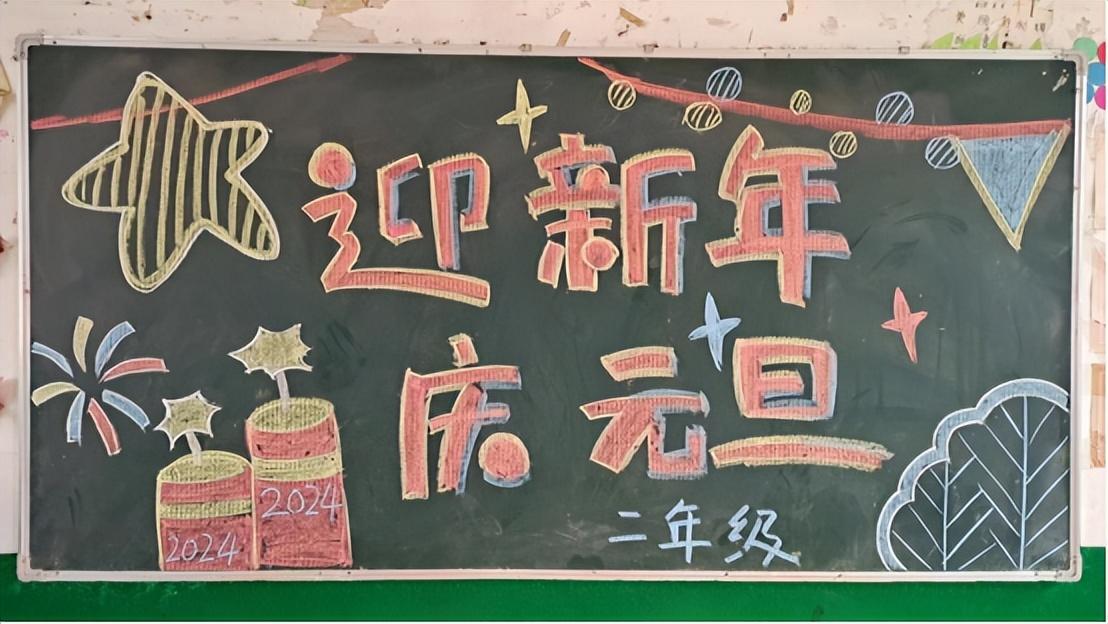 迎新年
庆元旦
2024
2024
二年级